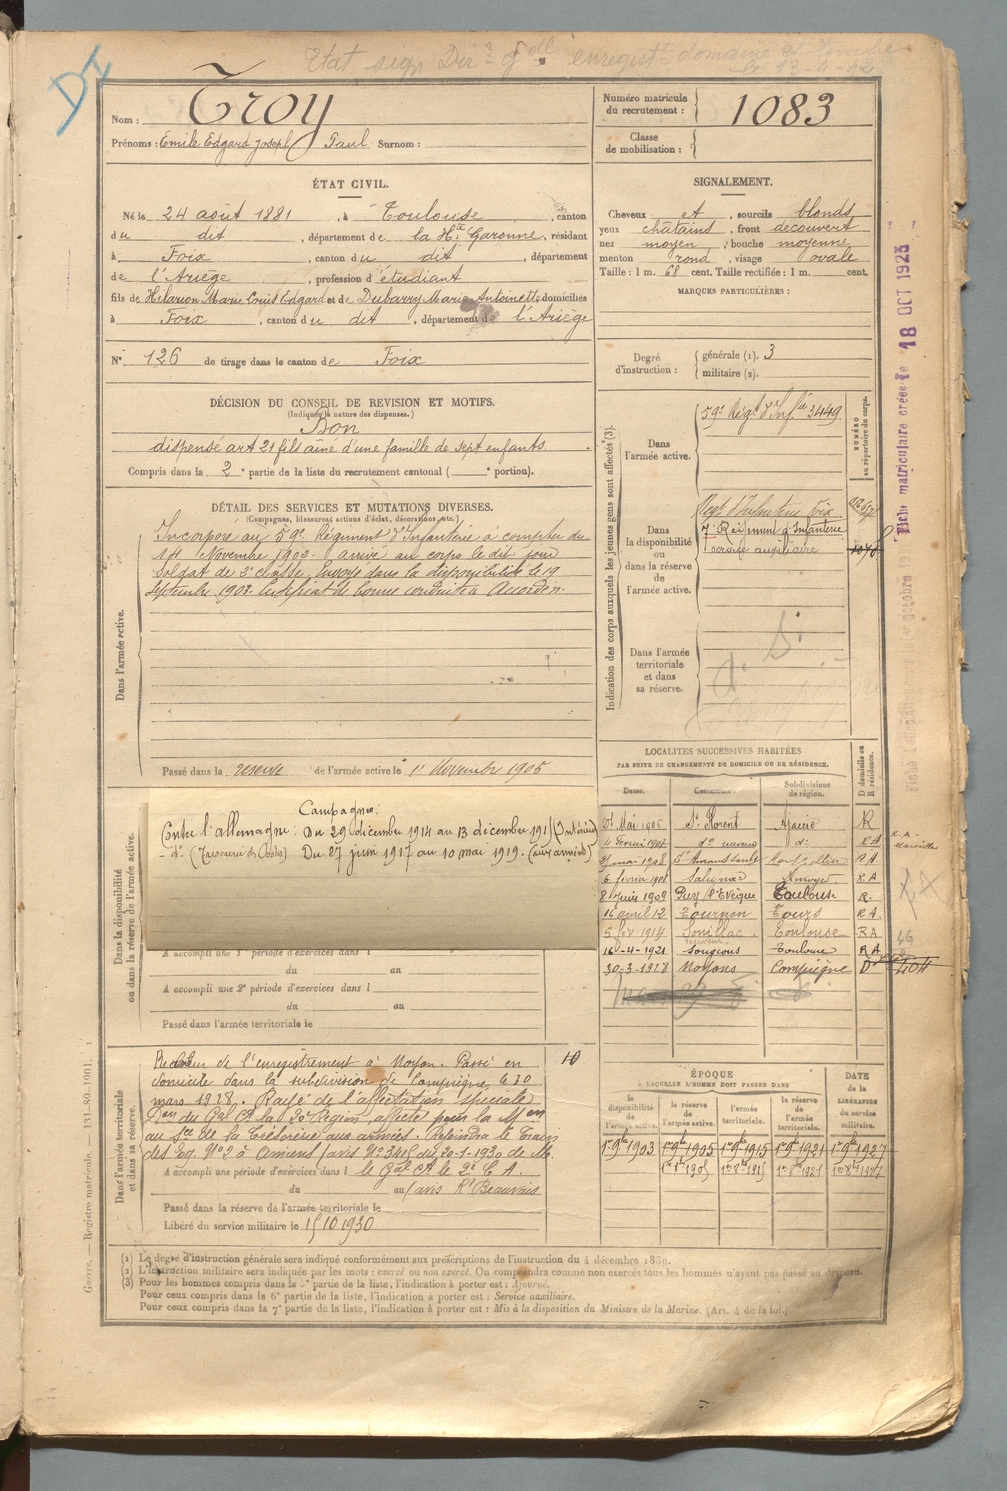 Etat sig. Dir. enregist. domaine et timbre
le 13-4-02
DI
Nom : Troy
Prénoms : Emile Edgard Joseph Paul Surnom :
Numéro matricule du recrutement : 1083
Classe de mobilisation :
ÉTAT CIVIL.
Né le 24 août 1881, à Toulouse, canton
du dit, département de la Hte Garonne, résidant
à Foix, canton du dit, département
de l'Ariège, profession d'étudiant
fils de Hilarion Marie Louis Edgard et de Dubarry Marie Antoinette domiciliés
à Foix, canton du dit, département de l'Ariège
N° 126 de tirage dans le canton de Foix
SIGNALEMENT.
Cheveux et, sourcils blonds
yeux châtains, front découvert
nez moyen, bouche moyenne
menton rond, visage ovale
Taille : 1 m. 68 cent. Taille rectifiée : 1 m. cent.
MARQUES PARTICULIÈRES :
Degré d'instruction : générale (1). 3
militaire (2).
DÉCISION DU CONSEIL DE REVISION ET MOTIFS.
(Indiquer la nature des dispenses.)
Bon
dispensé art 21 fils aîné d'une famille de sept enfants
Compris dans la 2e partie de la liste du recrutement cantonal ( e portion).
DÉTAIL DES SERVICES ET MUTATIONS DIVERSES.
(Campagnes, blessures, actions d'éclat, décorations, etc.)
Dans l'armée active.
Incorporé au 59e Régiment d'Infanterie à compter du
14 Novembre 1902. arrivé au corps le dit jour
soldat de 2e classe. Envoyé dans la disponibilité le 19
Septembre 1903. Certificat de bonne conduite Accordé.
Passé dans la réserve de l'armée active le 1er Novembre 1905
Indication des corps auxquels les jeunes gens sont affectés (3).
NUMÉRO au répertoire du corps.
Dans l'armée active.
59e Régt d'Infie 3449
Dans la disponibilité ou dans la réserve de l'armée active.
Régt d'Infanterie Foix
7e Régiment d'Infanterie
service auxiliaire
Dans l'armée territoriale et dans sa réserve.
Fiche matriculaire créée le 18 OCT 1923
LOCALITÉS SUCCESSIVES HABITÉES
PAR SUITE DE CHANGEMENTS DE DOMICILE OU DE RÉSIDENCE.
Dates. Communes. Subdivisions de région. D domicile ou R résidence.
Mai 1906 St Florent Ajaccio R
4 février 1907 do do RA
mai 1908 St Amans Soult Montpellier RA
6 février 1908 RA
8 juin 1909 Puy l'Evêque Toulouse R.
16 avril 12 Tournon Tours RA
5 fév. 1914 Souillac Toulouse RA
16-4-1921 Toulouse RA
30-3-1928 Noyons Compiègne D
Dans la disponibilité ou dans la réserve de l'armée active.
Campagnes
Contre l'allemagne : Du 29 décembre 1914 au 13 décembre 191 (Intérieur)
- do - Du 27 juin 1917 au 10 mai 1919. (aux armées)
A accompli une 1re période d'exercices dans l
du au
A accompli une 2e période d'exercices dans l
du au
Passé dans l'armée territoriale le
Dans l'armée territoriale et dans sa réserve.
Receveur de l'enregistrement à Noyon. Passé en
domicile dans la subdivision de Compiègne le 30
mars 1928. Rayé de l'affectation spéciale
Don du Gal Ct la 2e Région, affecté pour la Mon
au Sce de la Trésorerie aux armées. Rejoindra le Train
des Eq. N° 2 à Amiens (avis N° du 20-1-1930 de M.
A accompli une période d'exercices dans l le Gal Ct le 2e C.A.
du au (avis Rt Beauvais
Passé dans la réserve de l'armée territoriale le
Libéré du service militaire le 15 10 1930
ÉPOQUE
À LAQUELLE L'HOMME DOIT PASSER DANS
la disponibilité de l'armée active. la réserve de l'armée active. l'armée territoriale. la réserve de l'armée territoriale.
DATE de la LIBÉRATION du service militaire.
1er 9bre 1903 1er 9bre 1905 1er 9bre 1915 1er 9bre 1921 1er 9bre 1927
(1) Le degré d'instruction générale sera indiqué conformément aux prescriptions de l'instruction du 4 décembre 1889.
(2) L'instruction militaire sera indiquée par les mots : exercé ou non exercé. On comprendra comme non exercés tous les hommes n'ayant pas passé au drapeau.
(3) Pour les hommes compris dans la 5e partie de la liste, l'indication à porter est : Ajourné.
Pour ceux compris dans la 6e partie de la liste, l'indication à porter est : Service auxiliaire.
Pour ceux compris dans la 7e partie de la liste, l'indication à porter est : Mis à la disposition du Ministre de la Marine. (Art. 4 de la loi.)
Guerre. — Registre matricule. — 131-80-1901.